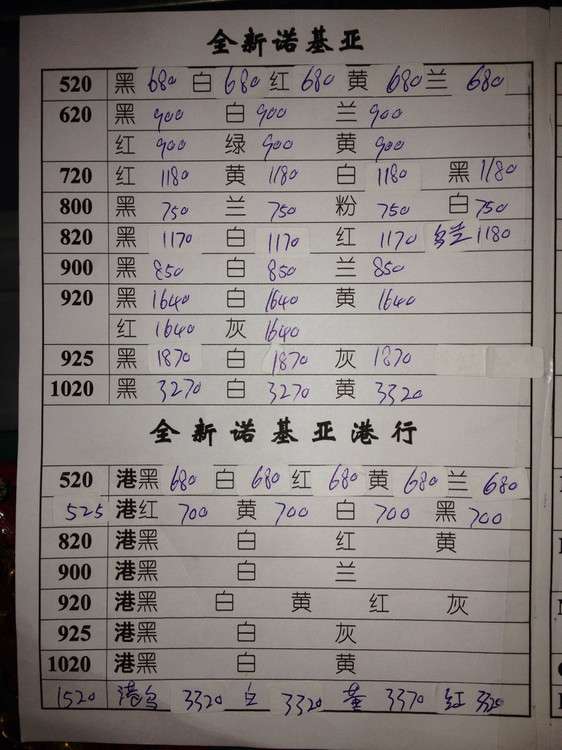 全新诺基亚
520 黑 680 白 680 红 680 黄 680 兰 680
620 黑 900 白 900 兰 900
红 900 绿 900 黄 900
720 红 1180 黄 1180 白 1180 黑 1180
800 黑 750 兰 750 粉 750 白 750
820 黑 1170 白 1170 红 1170 兰 1180
900 黑 850 白 850 兰 850
920 黑 1640 白 1640 黄 1640
红 1640 灰 1640
925 黑 1870 白 1870 灰 1870
1020 黑 3270 白 3270 黄 3320
全新诺基亚港行
520 港黑 680 白 680 红 680 黄 680 兰 680
525 港红 700 黄 700 白 700 黑 700
820 港黑 白 红 黄
900 港黑 白 兰
920 港黑 白 黄 红 灰
925 港黑 白 灰
1020 港黑 白 黄
1520 港 3320 白 3320 黄 3370 红 3320